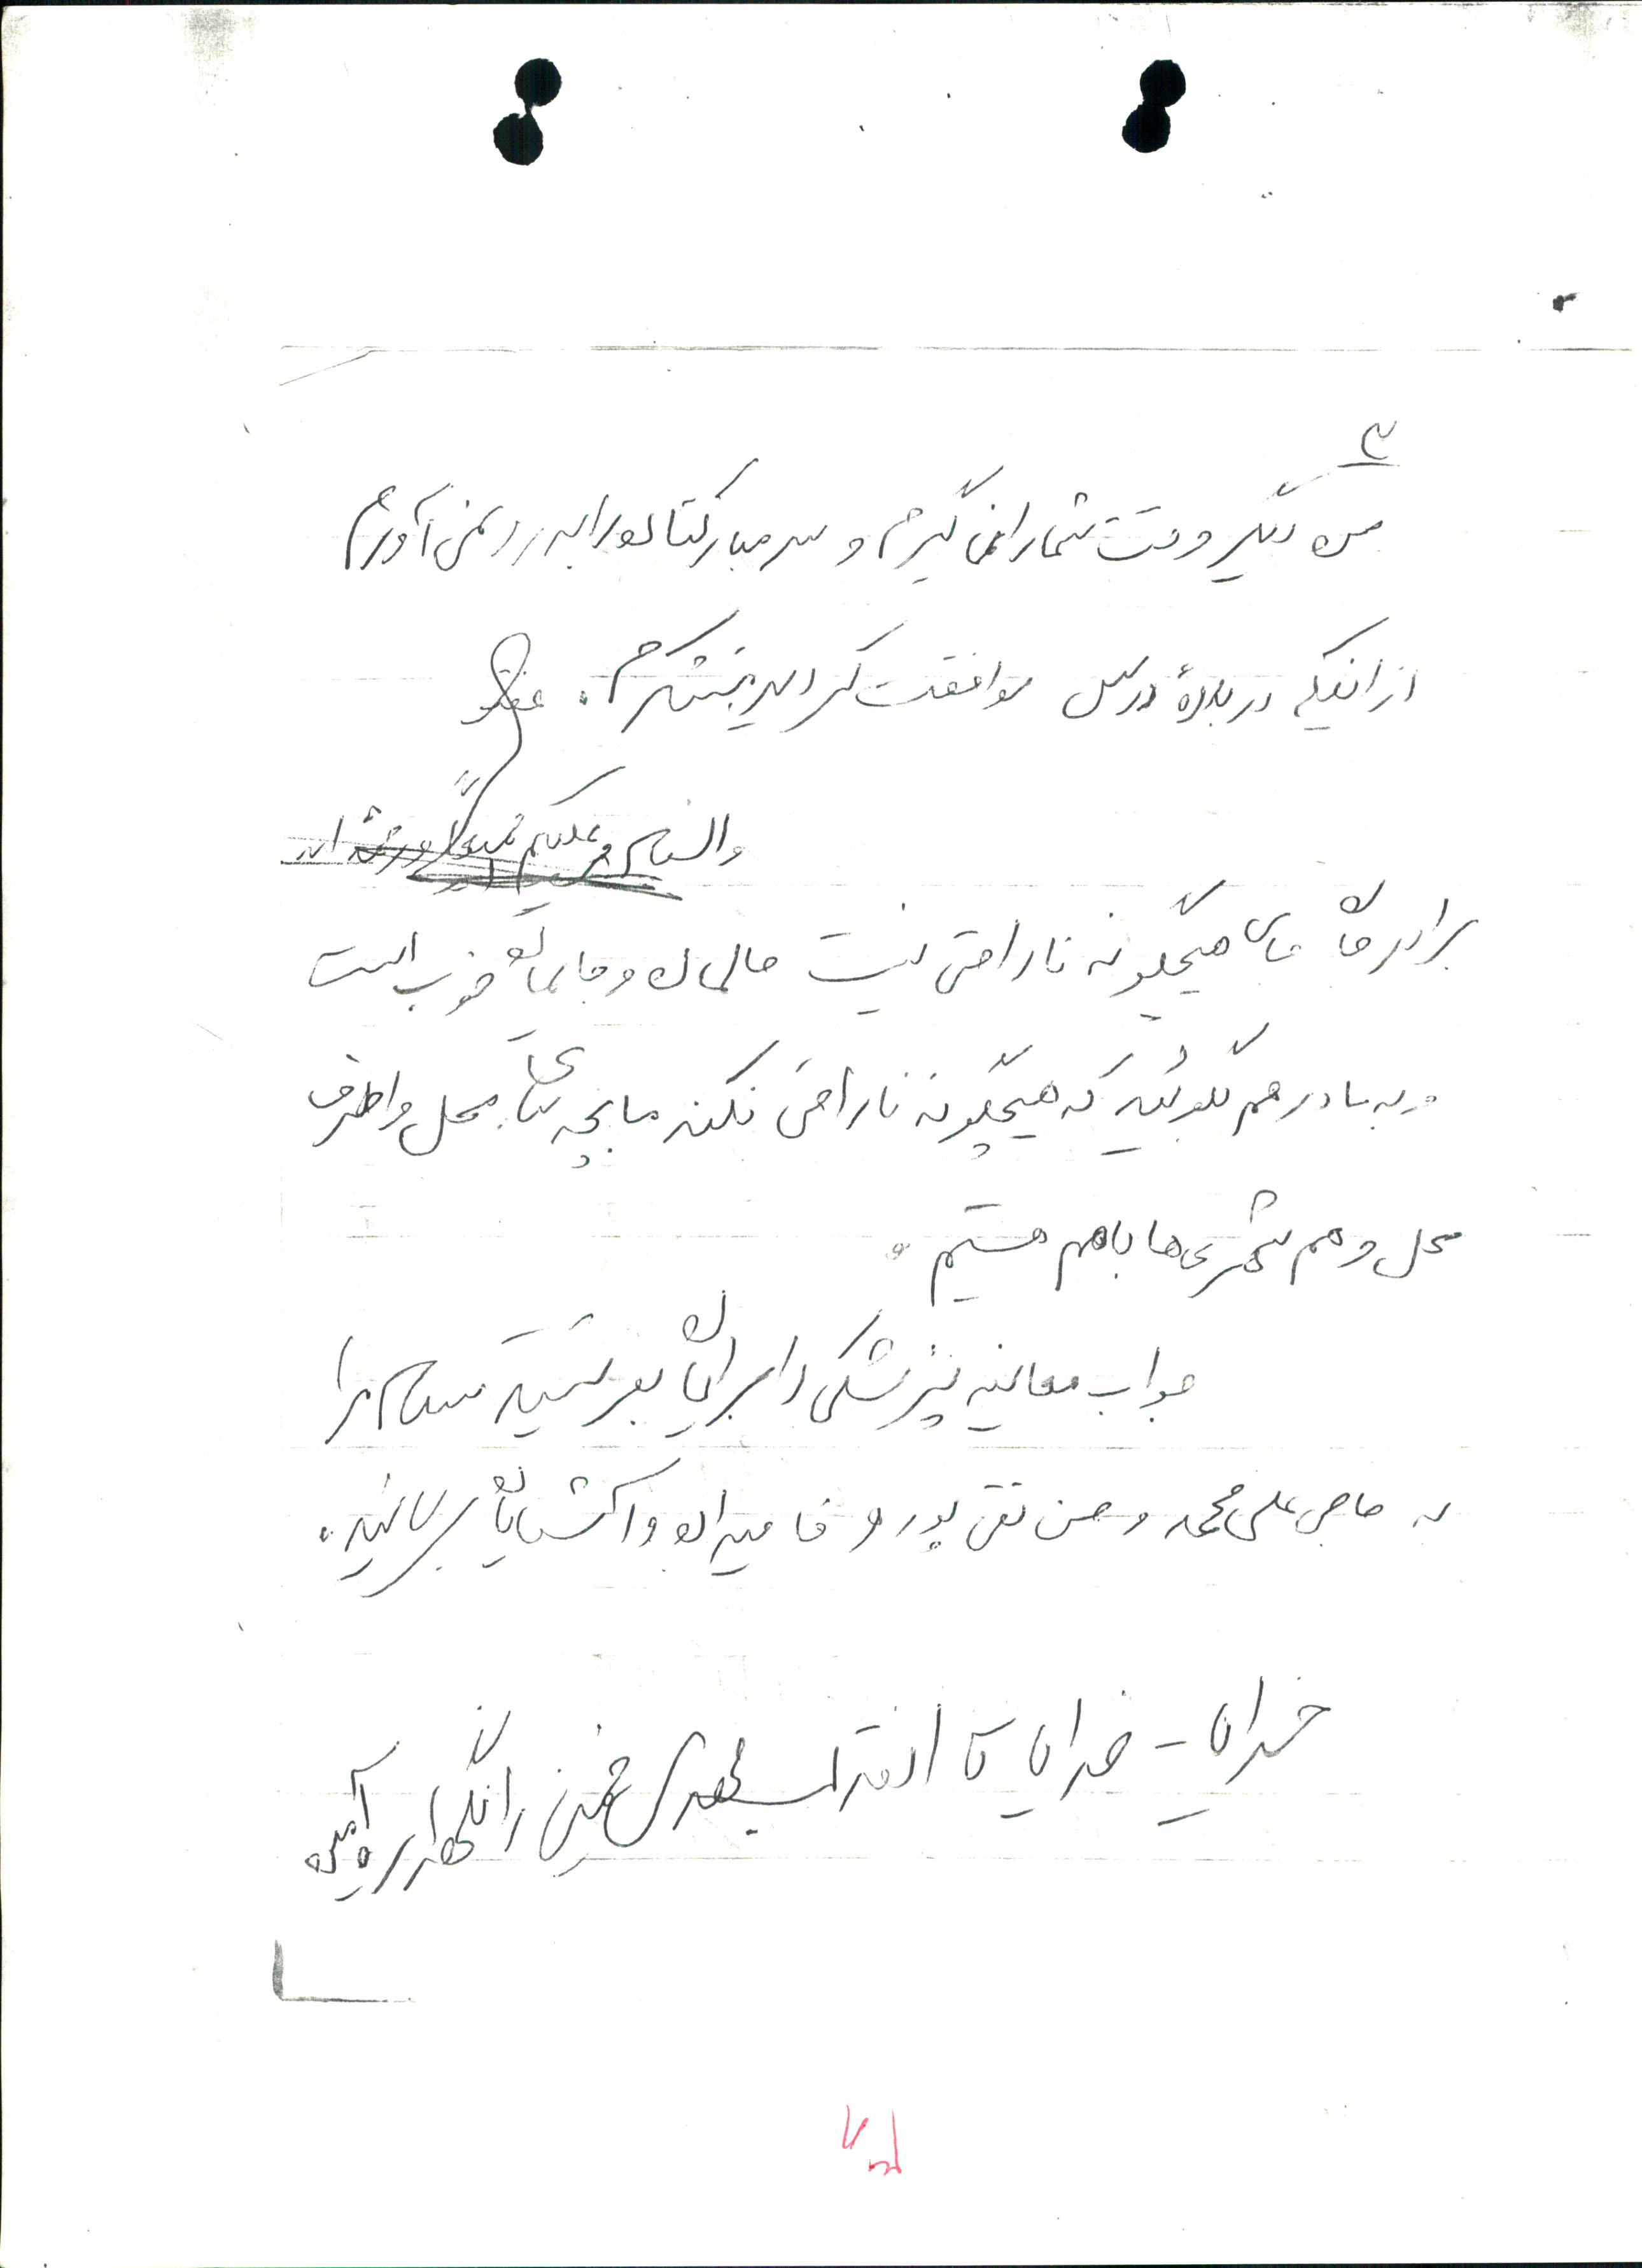 ۳
من دیگر وقت شما را نمی گیرم و سر مبارکتان را بدرد نمی آورم
از اینکه در بارهٔ درس موافقت کردید متشکرم.
والسلام و علیکم
برادر جان جای هیچگونه ناراحتی نیست حالمان و جایمان خوب است
و به مادر هم بگوئید که هیچگونه ناراحتی نکند ما بچه های محل و اطراف
محل و هم شهری ها باهم هستیم.
جواب معاینه پزشکی را برایمان بفرستید سلام مرا
به حاجی علی محمد و حسن تقی پور و فامیلان و آشنایان برسانید.
خدایا - خدایا تا انقلاب مهدی خمینی را نگهدار آمین